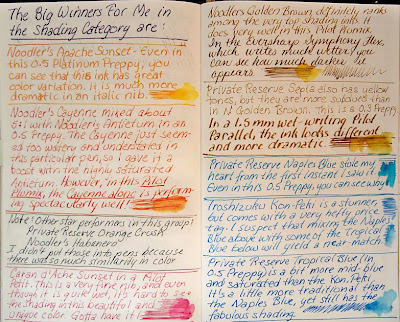 The Big Winners For Me in
the Shading Category are:
Noodler's Apache Sunset - Even in
this 0.5 Platinum Preppy, you
can see that this ink has great
color variation. It is much more
dramatic in an italic nib.
Noodler's Cayenne mixed about
6:1 with Noodler's Antietam in an
0.5 Preppy. The Cayenne just seem-
ed too watery and understated in
this particular pen, so I gave it a
boost with the highly saturated
Antietum. However, in this Pilot
Plumix, the Cayenne alone is perform-
ing spectacularly well!
Note: Other star performers in this group:
Private Reserve Orange Crush
Noodler's Habanero
I didn't put those into pens because
there was so much similarity in color
Caran d'Ache Sunset in a Pilot
Petit. This is a very fine nib, and even
though it is quite wet, it's hard to see
the shading in this beautiful and
unique color. Gotta have it in
Noodlers Golden Brown definitely ranks
among the very top shading inks. It
does very well in this Pilot Plumix.
In the Eversharp Symphony flex,
which writes much wetter, you
can see how much darker it
appears.
Private Reserve Sepia also has yellow
tones, but they are more subdued than
in N. Golden Brown. This is a 0.3 Preppy.
In a 1.5mm wet-writing Pilot
Parallel, the ink looks different
and more dramatic.
Private Reserve Naples Blue stole my
heart from the first instant I saw it
Even in this 0.5 Preppy, you can see why
Iroshizuku Kon-Peki is a stunner,
but comes with a very hefty price
tag. I suspect that mixing the Naples
Blue above with some of the Tropical
Blue below will yield a near-match.
Private Reserve Tropical Blue (in
0.5 Preppy) is a bit more mid-blue
and saturated than the Kon-Peki.
It's a little more traditional than
the Naples Blue, yet still has the
fabulous shading.